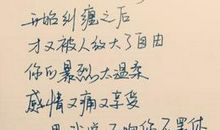 开始纠缠之后
才又被人放大了自由
你的暴烈太温柔
感情又痛又享受